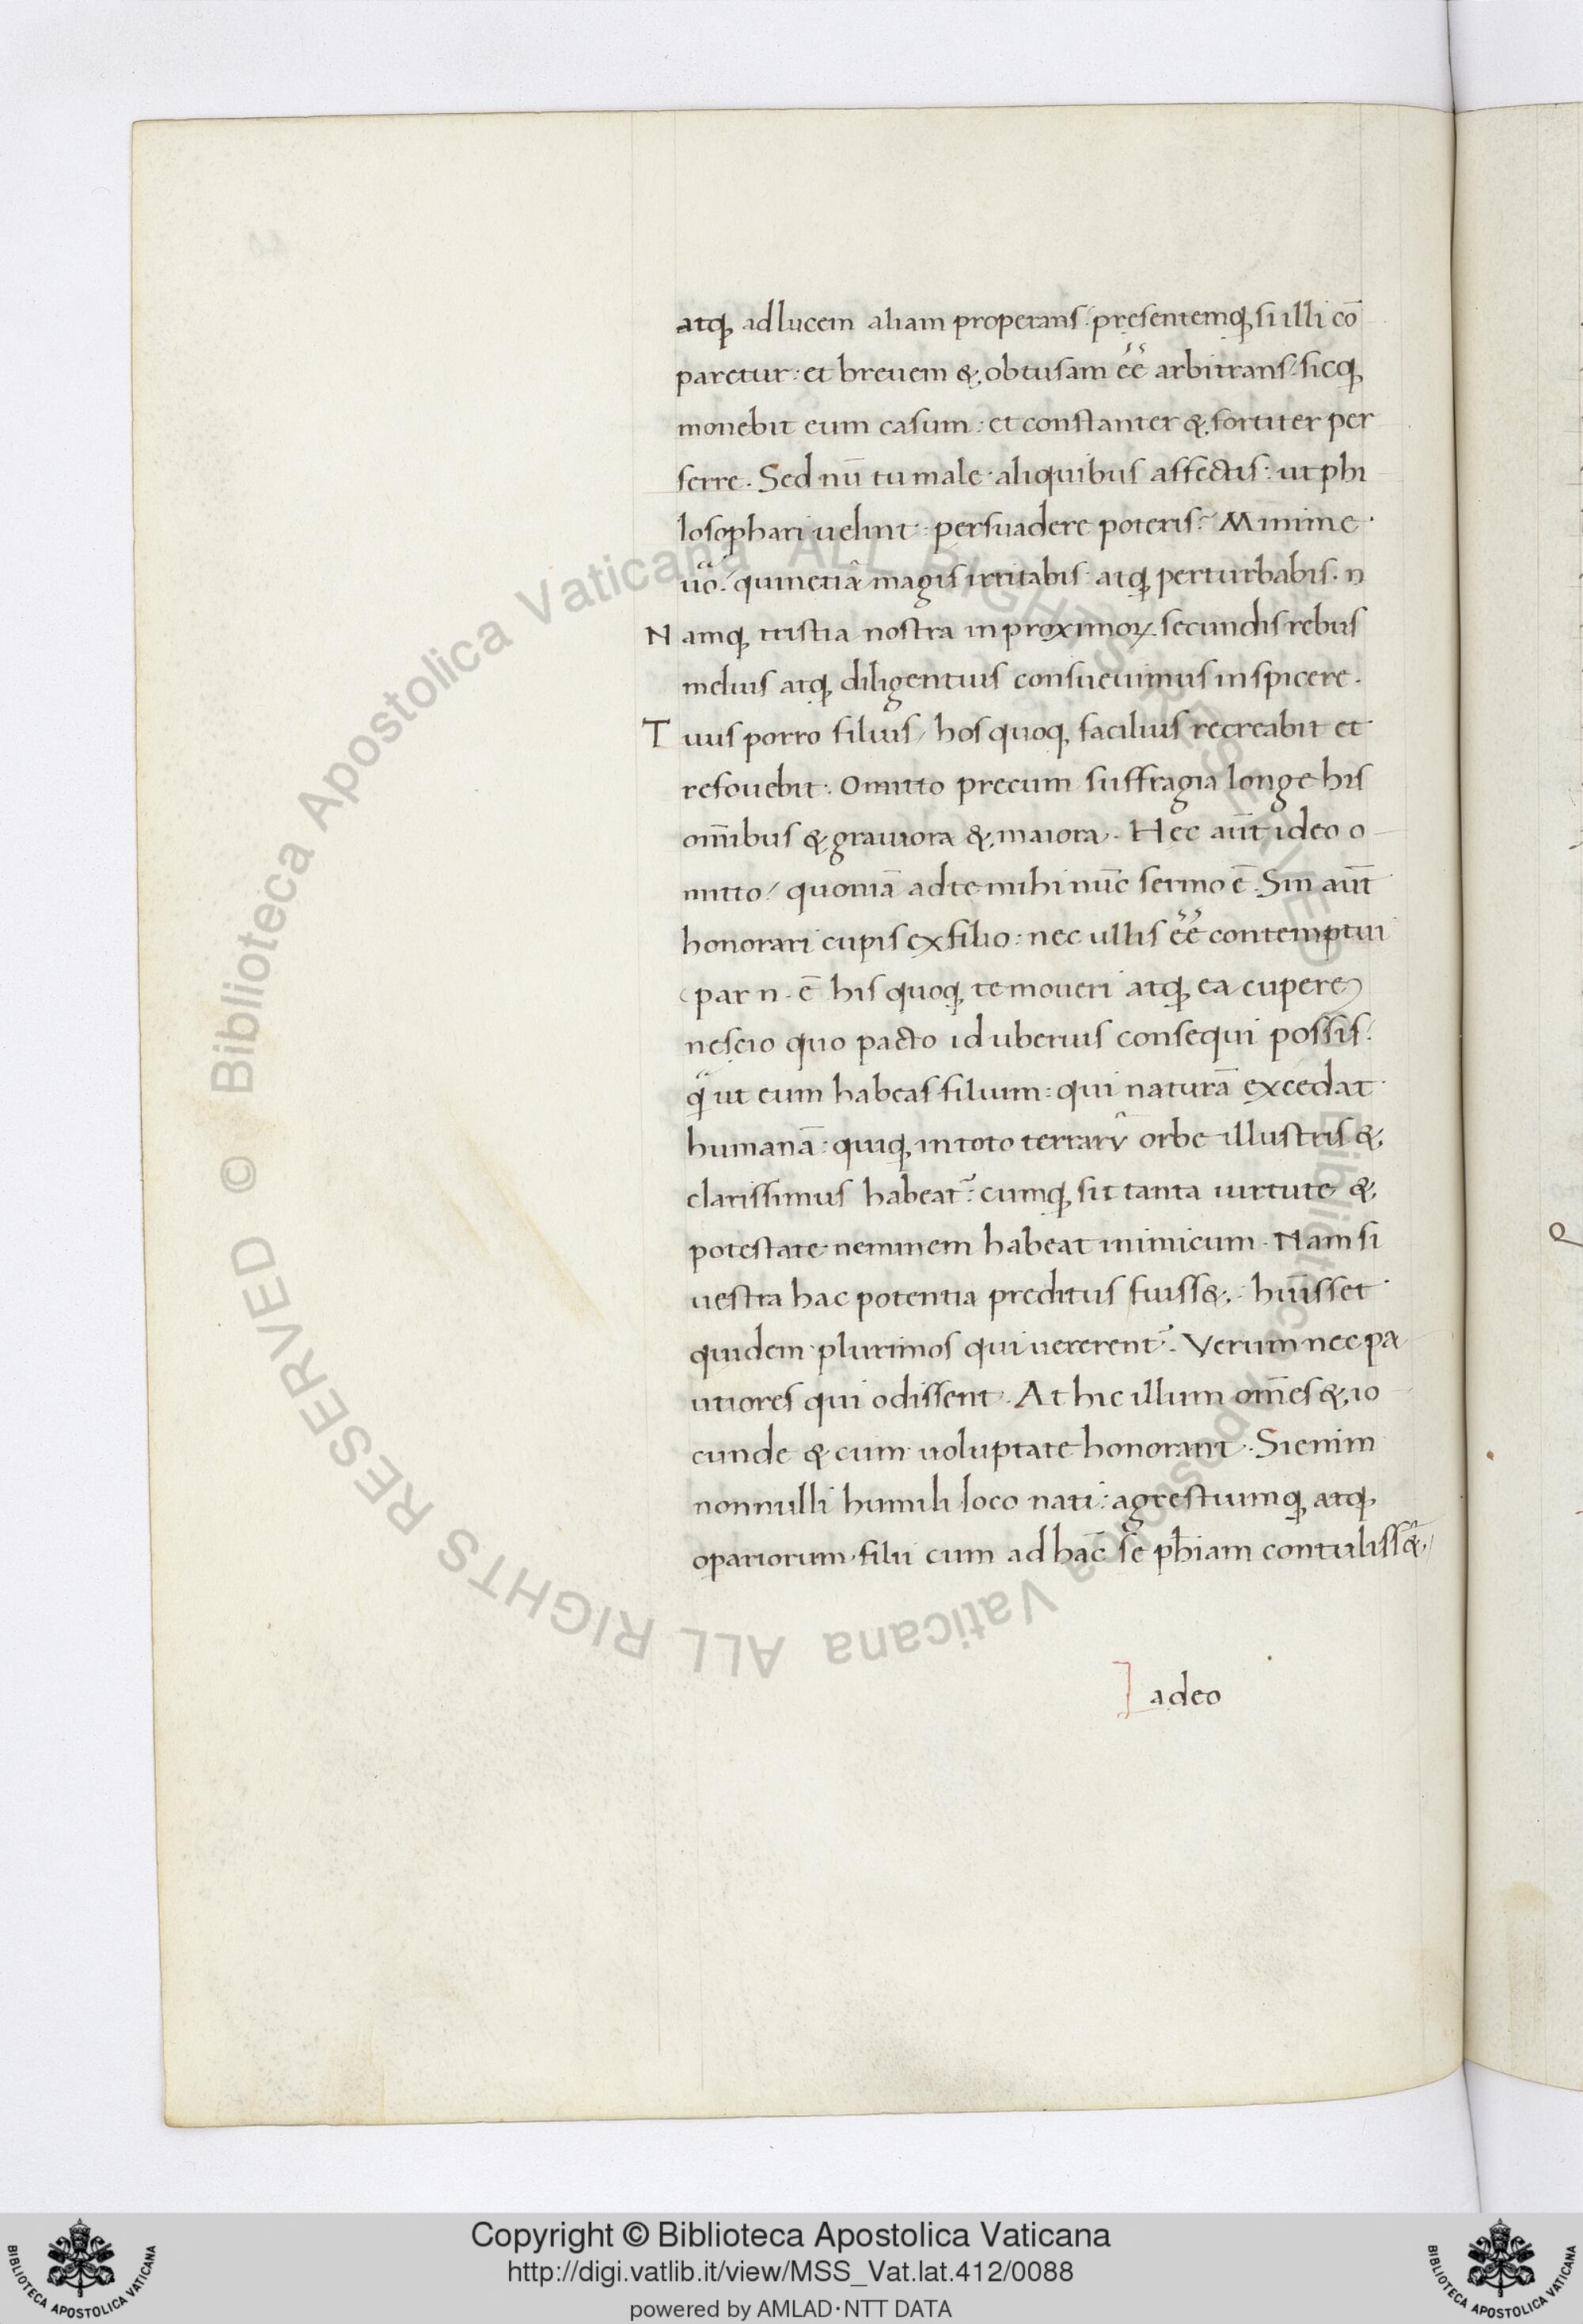 atq; ad lucem aliam properans: pręsentemq; si illi cō
paretur: et breuem &, obtusam ēē arbitrans: sicq;
monebit eum casum: et constanter & fortiter per
ferre. Sed nū tu male aliquibus affectis: ut phi
losophari uelint: persuadere poteris? Minime
uō: quinetiā magis irritabis atq; perturbabis. n
Namq; tristia nostra in proximoꝝ secundis rebus
melius atq; diligentius consueuimus inspicere.
Tuus porro filius / hos quoq; facilius recreabit et
refouebit. Omitto precum suffragia longe his
om̄ibus & grauiora &, maiora. Hec aūt ideo o
mitto / quoniā ad te mihi nūc sermo ē. Sin aūt
honorari cupis ex filio: nec ullis ēē contemptui
(par n. ē his quoq; te moueri atq; ea cupere)
nescio quo pacto id uberius consequi possis:
q̃ ut eum habeas filium: qui naturā excedat
humanā: quiq; in toto terrarū orbe illustris &,
clarissimus habeat᷒: cumq; sit tanta uirtute &,
potestate neminem habeat inimicum. Nam si
uestra hac potentia preditus fuiss&,: hūisset
quidem plurimos qui uererent᷒. Verum nec pa
utiores qui odissent. At hic illum om̄es &, io
cunde & cum uoluptate honorant. Si enim
nonnulli humili loco nati: agrestiumq; atq;
opariorum filii cum ad hāc se ph̄iam contuliss&̄,
adeo
Copyright © Biblioteca Apostolica Vaticana
http://digi.vatlib.it/view/MSS_Vat.lat.412/0088
powered by AMLAD·NTT DATA
BIBLIOTECA APOSTOLICA VATICANA
BIBLIOTECA APOSTOLICA VATICANA
© Biblioteca Apostolica Vaticana ALL RIGHTS RESERVED
© Biblioteca Apostolica Vaticana ALL RIGHTS RESERVED